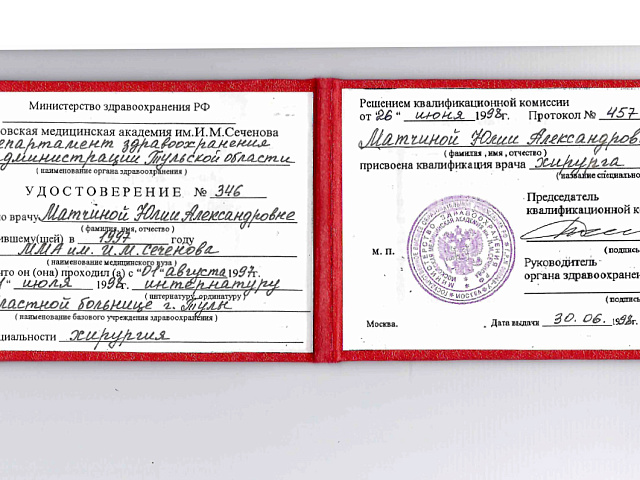 Министерство здравоохранения РФ
овская медицинская академия им.И.М.Сеченова
епартамент здравоохранения
дминистрации Тульской области
( наименование органа здравоохранения )
УДОСТОВЕРЕНИЕ № 346
о врачу Матчиной Юлии Александровне
( фамилия, имя, отчество )
ившему(шей) в 1997 году
ММА им. И.М. Сеченова
( наименование медицинского вуза )
что он (она) проходил (а) с "01" августа 1997г.
1" июля 1998г. интернатуру
( интернатуру, ординатуру )
ластной больнице г. Тулы
( наименование базового учреждения здравоохранения )
циальности хирургия
Решением квалификационной комиссии
от "26" июня 1998г. Протокол № 457
Матчиной Юлии Александровн
( фамилия , имя , отчество )
присвоена квалификация врача хирурга
(название специально
Председатель
квалификационной к
(подпис
М. П.
Руководитель
органа здравоохранен
(подпись
Москва. Дата выдачи 30.06.1998г.